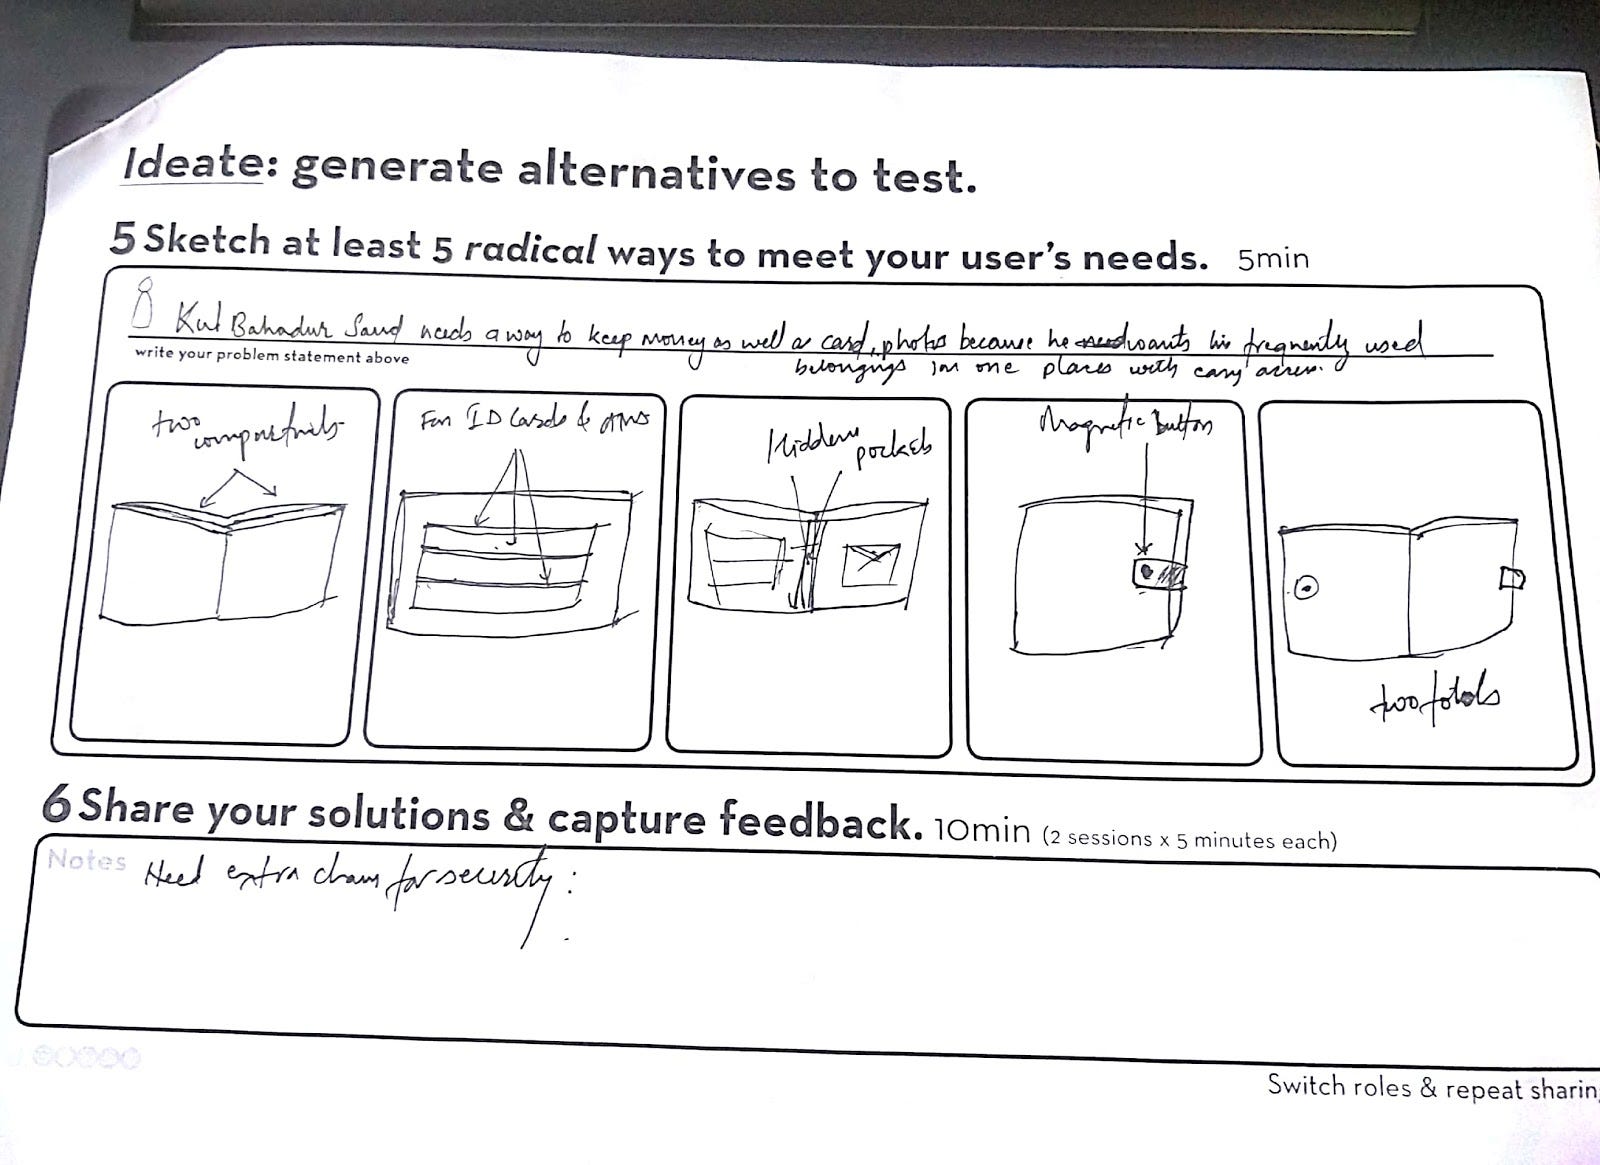 Ideate: generate alternatives to test.
5 Sketch at least 5 radical ways to meet your user's needs. 5min
Kul Bahadur Saud needs a way to keep money as well as card, photos because he wants his frequently used
write your problem statement above
belongings in one places with easy access.
two
compartments
For ID Cards &
Hidden
pockets
Magnetic Button
two folds
6 Share your solutions & capture feedback. 10min (2 sessions x 5 minutes each)
Notes
Need extra chain for security:
Switch roles & repeat sharin